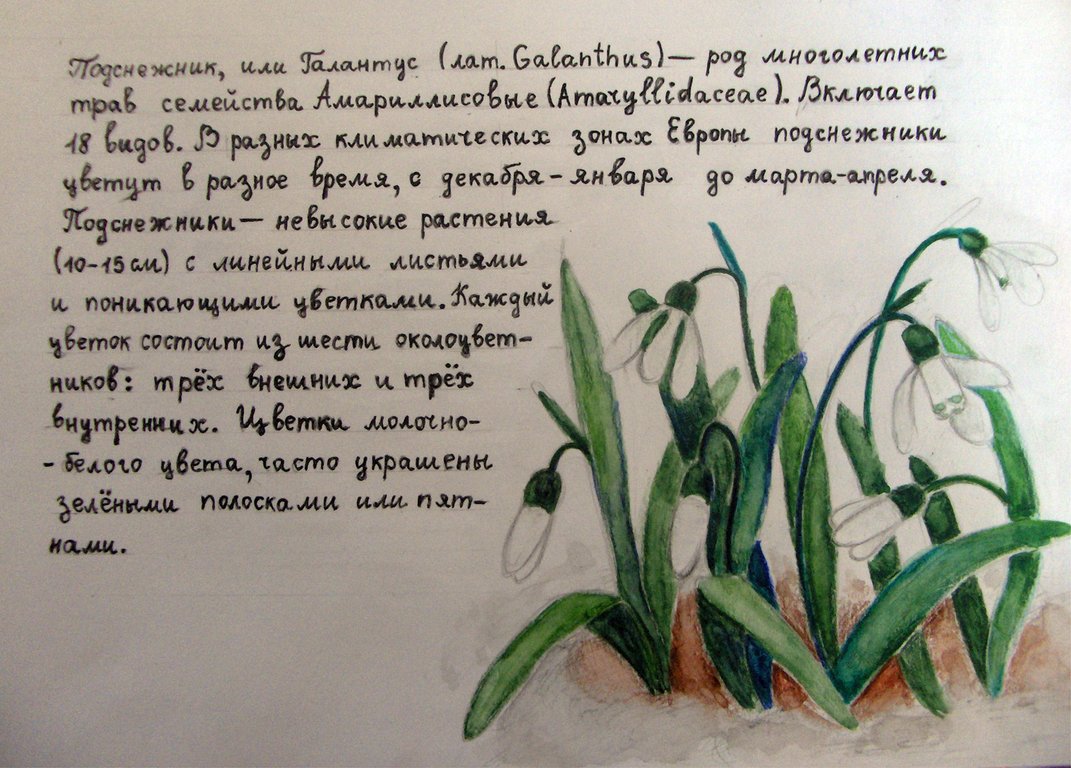 Подснежник, или Галантус (лат. Galanthus) — род многолетних
трав семейства Амариллисовые (Amaryllidaceae). Включает
18 видов. В разных климатических зонах Европы подснежники
цветут в разное время, с декабря - января до марта-апреля.
Подснежники — невысокие растения
(10-15 см) с линейными листьями
и поникающими цветками. Каждый
цветок состоит из шести околоцвет-
ников: трёх внешних и трёх
внутренних. Цветки молочно-
- белого цвета, часто украшены
зелёными полосками или пят-
нами.